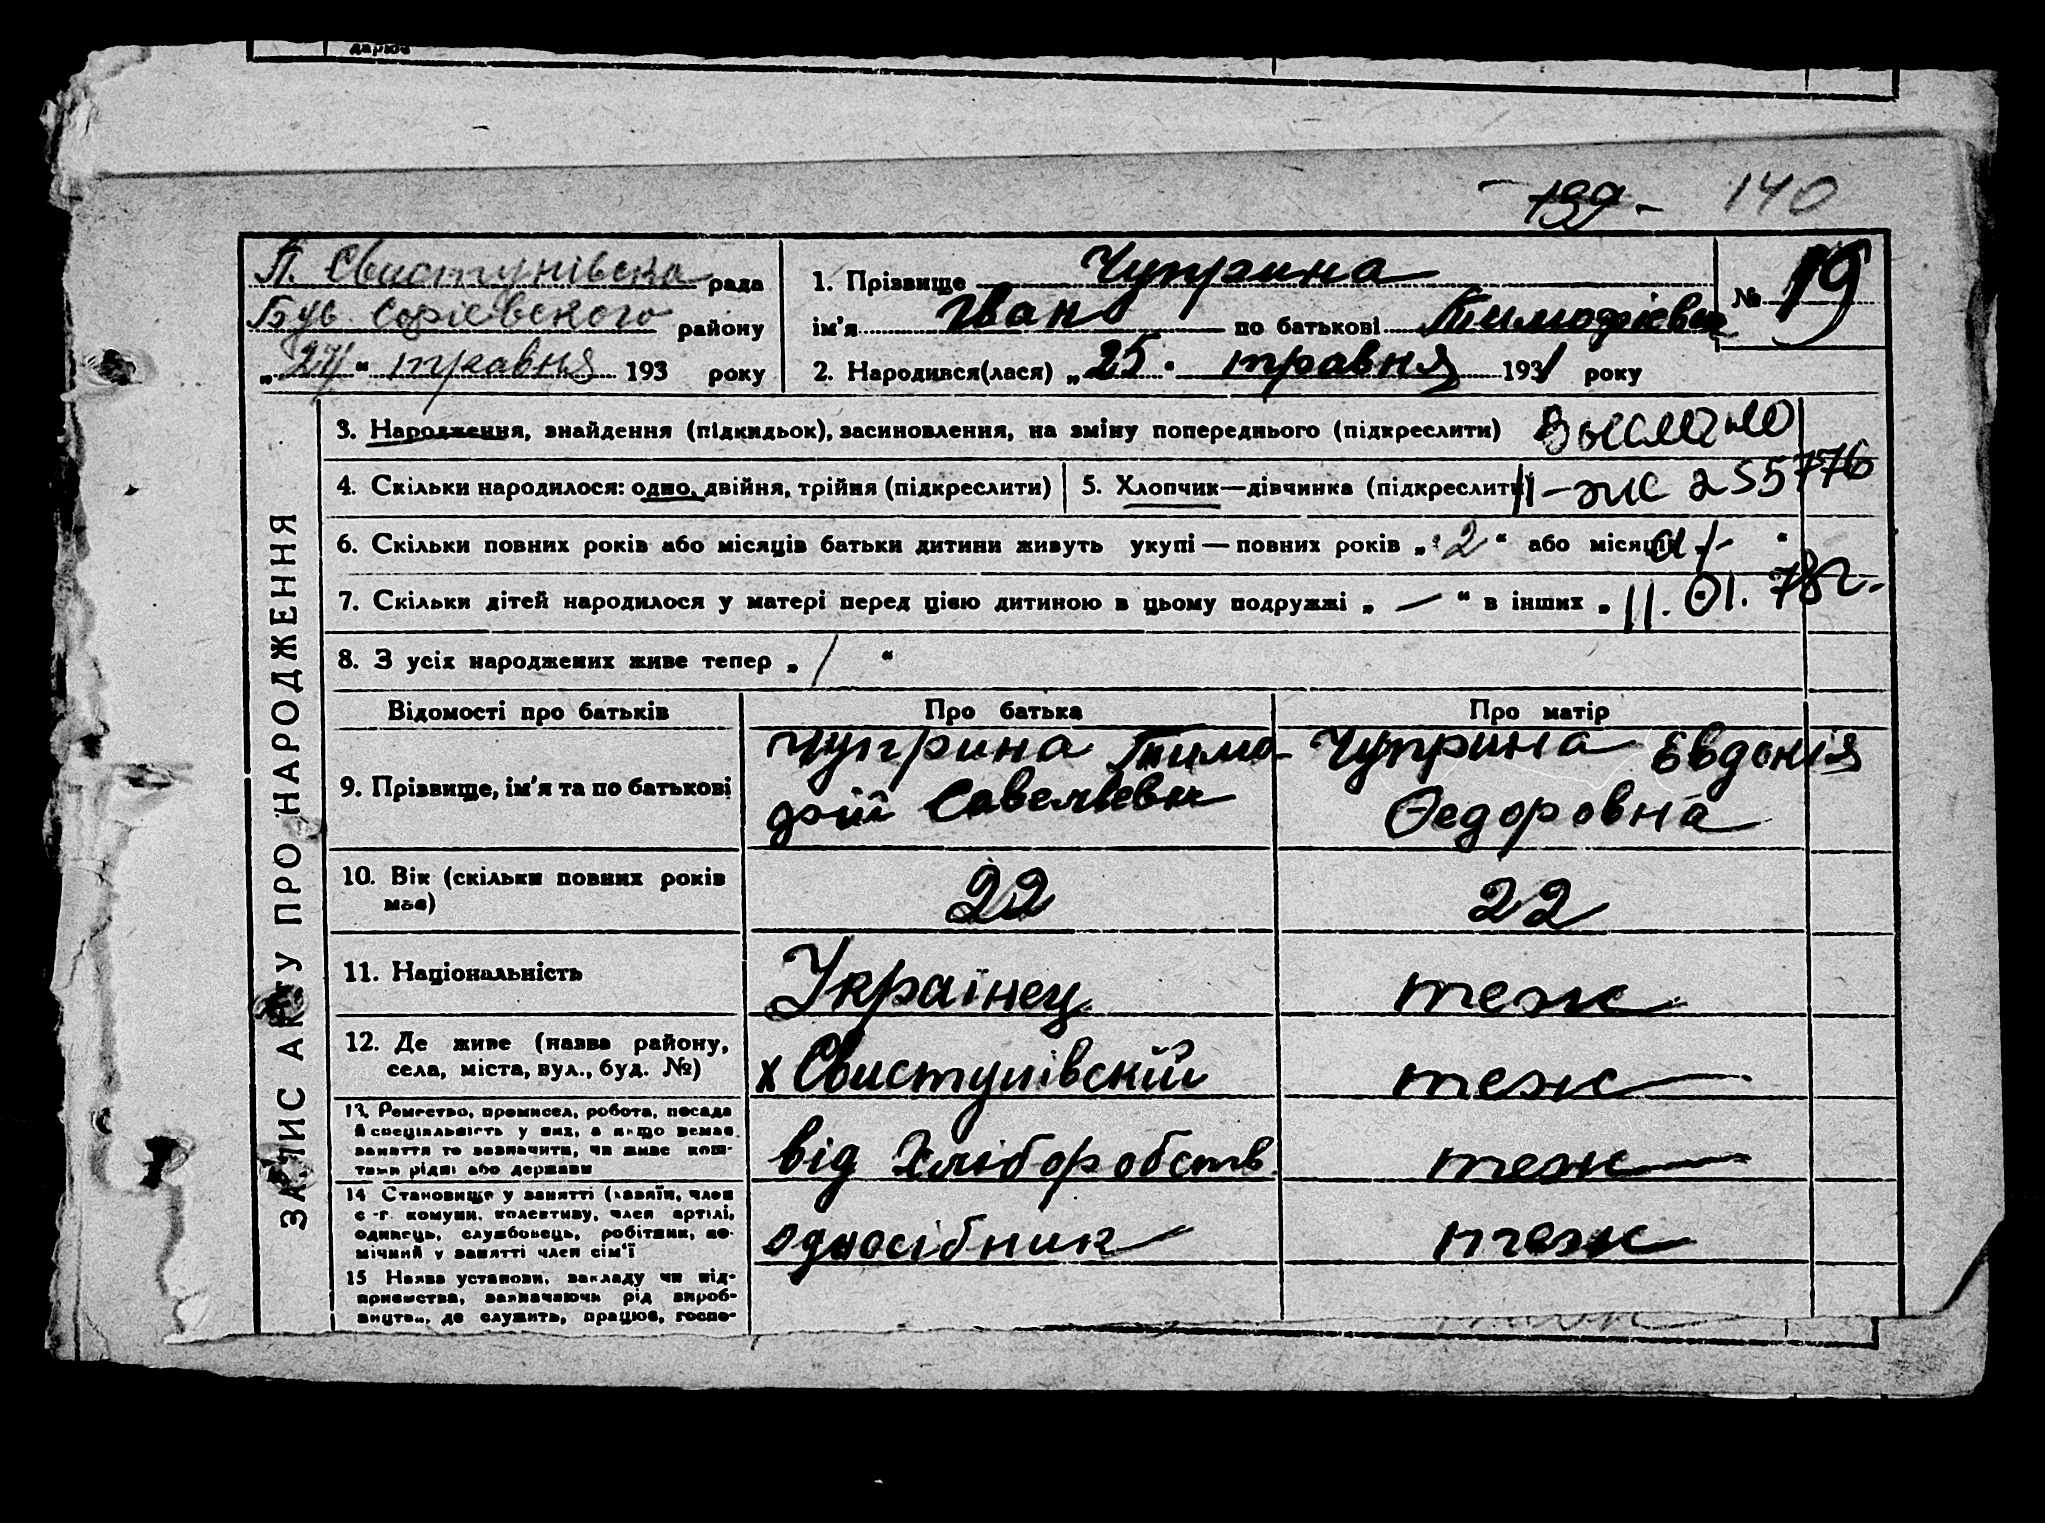 дарює
139 140
П. Свистунівська рада
Був. Софієвского району
„27“ травня 193 року
1. Прізвище Чуприна
ім'я Іван по батькові Тимофієвич
№ 19
2. Народився(лася) „25“ травня 1931 року
ЗАПИС АКТУ ПРО НАРОДЖЕННЯ
3. Народження, знайдення (підкидьок), засиновлення, на зміну попереднього (підкреслити)
4. Скільки народилося: одно, двійня, трійня (підкреслити)
5. Хлопчик—дівчинка (підкреслити) II-жс 255776
6. Скільки повних років або місяців батьки дитини живуть укупі — повних років „2“ або місяців „ “
7. Скільки дітей народилося у матері перед цією дитиною в цьому подружжі „—“ в інших „ 11.01.78г.
8. З усіх народжених живе тепер „/“
Відомості про батьків Про батька Про матір
9. Прізвище, ім'я та по батькові
Чуприна Тимо-
фій Савельевич
Чуприна Евдокія
Федоровна
10. Вік (скільки повних років
має)
22 22
11. Національність
Українец теж
12. Де живе (назва району,
села, міста, вул., буд. №)
х Свистунівский теж
13. Ремество, промисел, робота, посада
й спеціяльність у них, а якщо немає
заняття то зазначити, чи живе кош-
тами рідні або держави
від Хліборобств. теж
14 Становище у занятті (хазяїн, член
с.-г. комуни, колективу, член артілі,
одинець, службовець, робітник, по-
мічний у занятті член сім'ї
односібник теж
15 Назва установи, закладу чи під-
приємства, зазначаючи рід вироб-
ництва, де служить, працює, госпо-